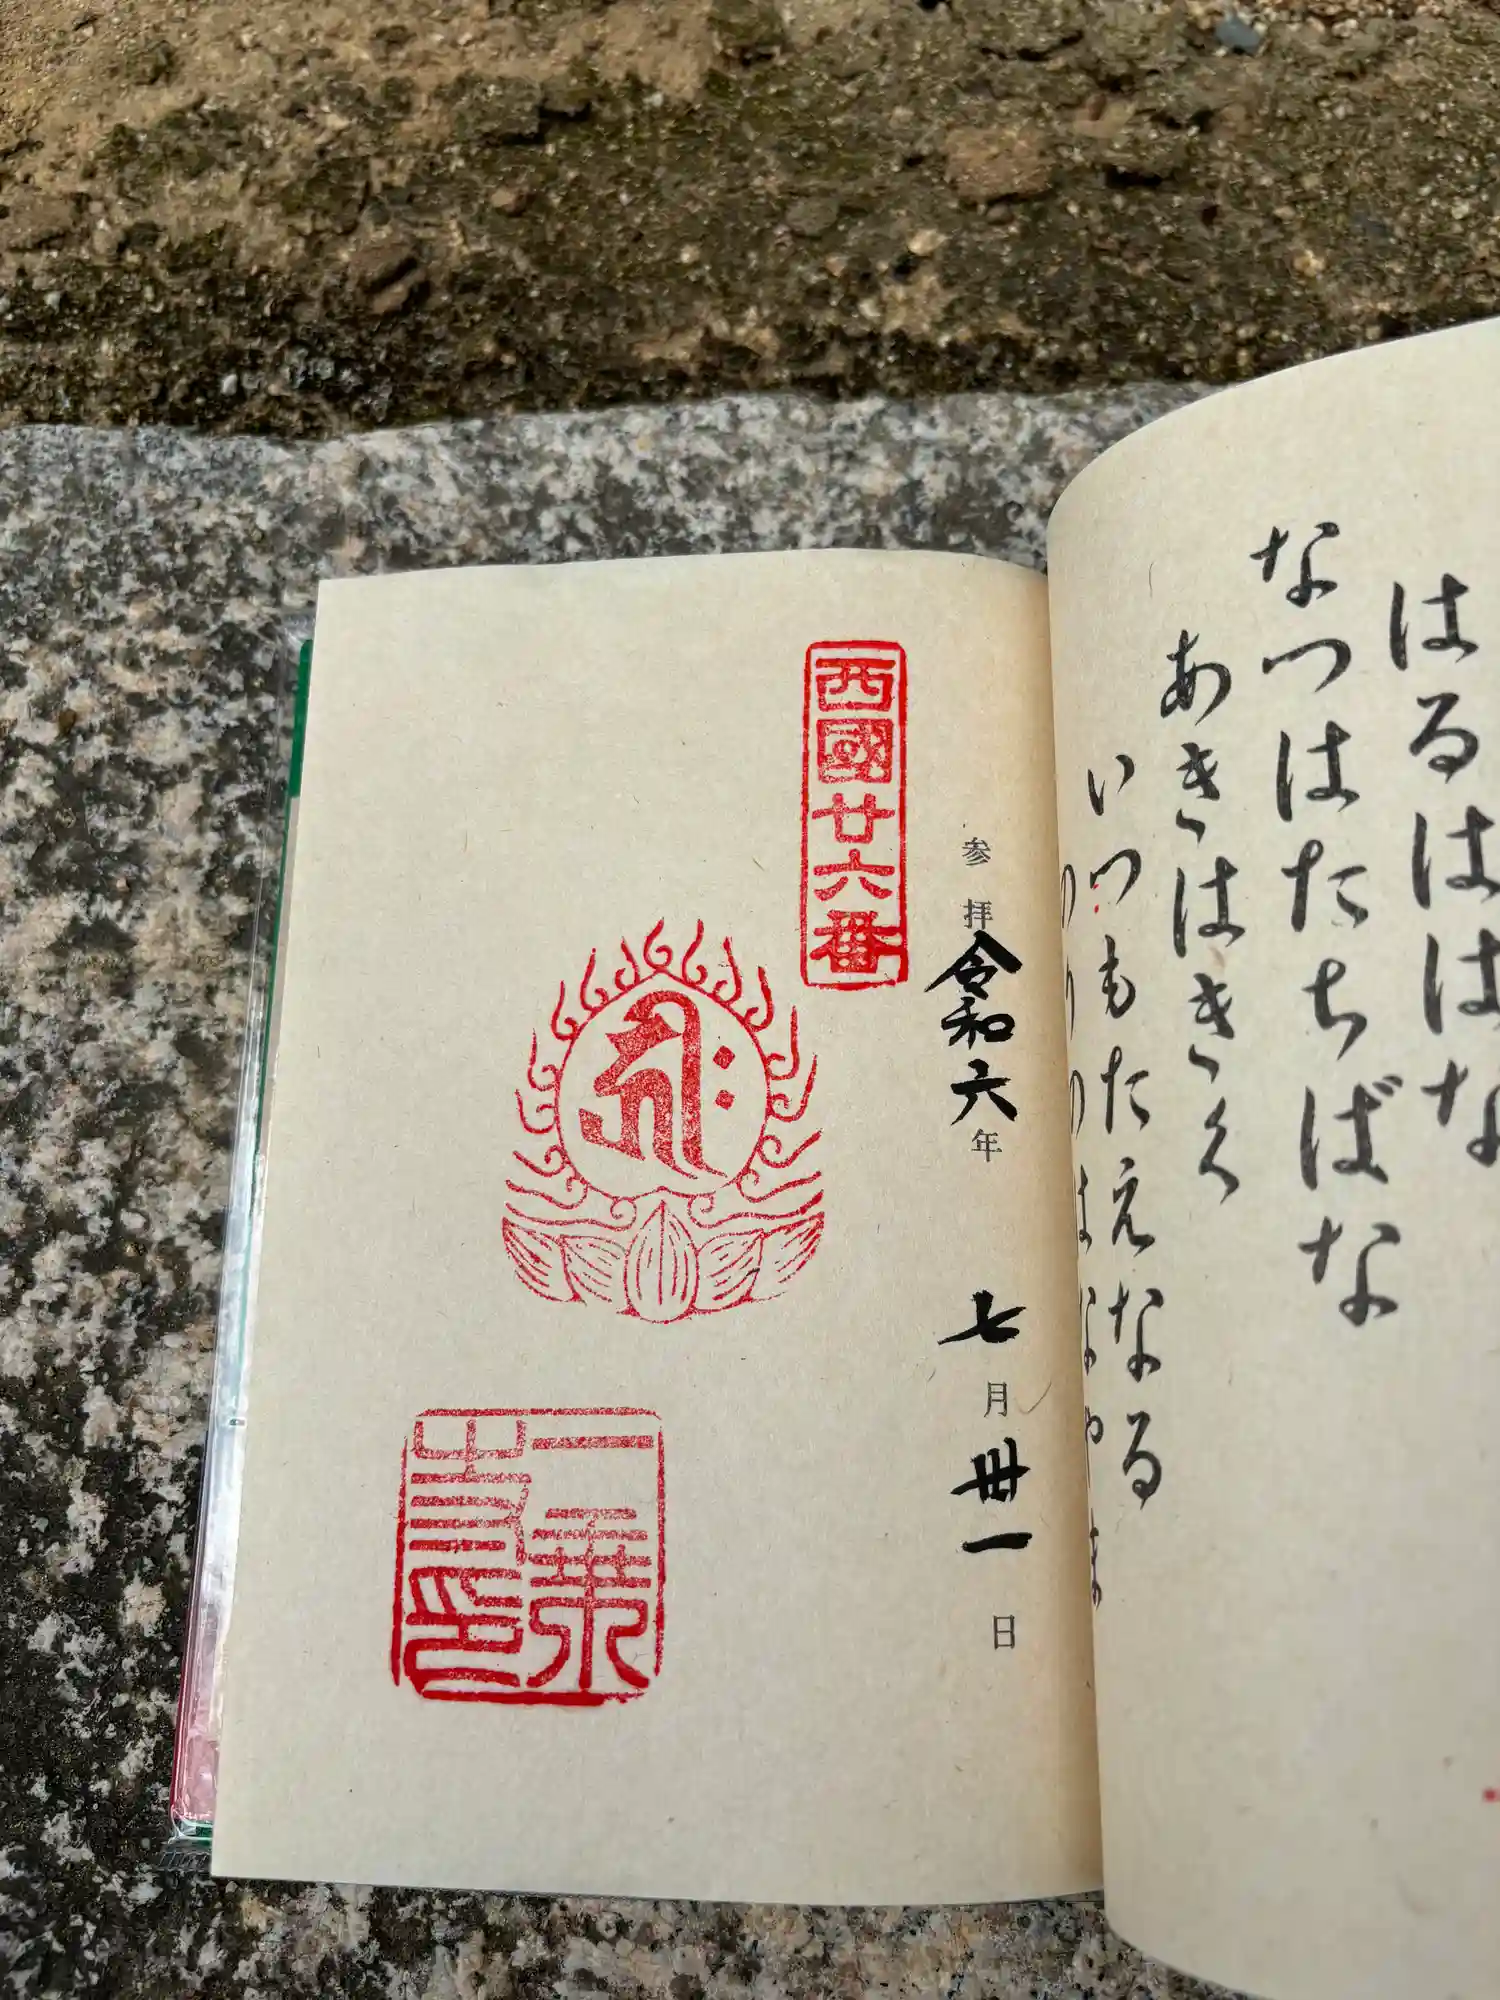 はるははな
なつはたちばな
あきはきく
いつもたえなる
のりのはなやま
参拝 令和六年 七月卅一日
西國廿六番
一乗
寺印